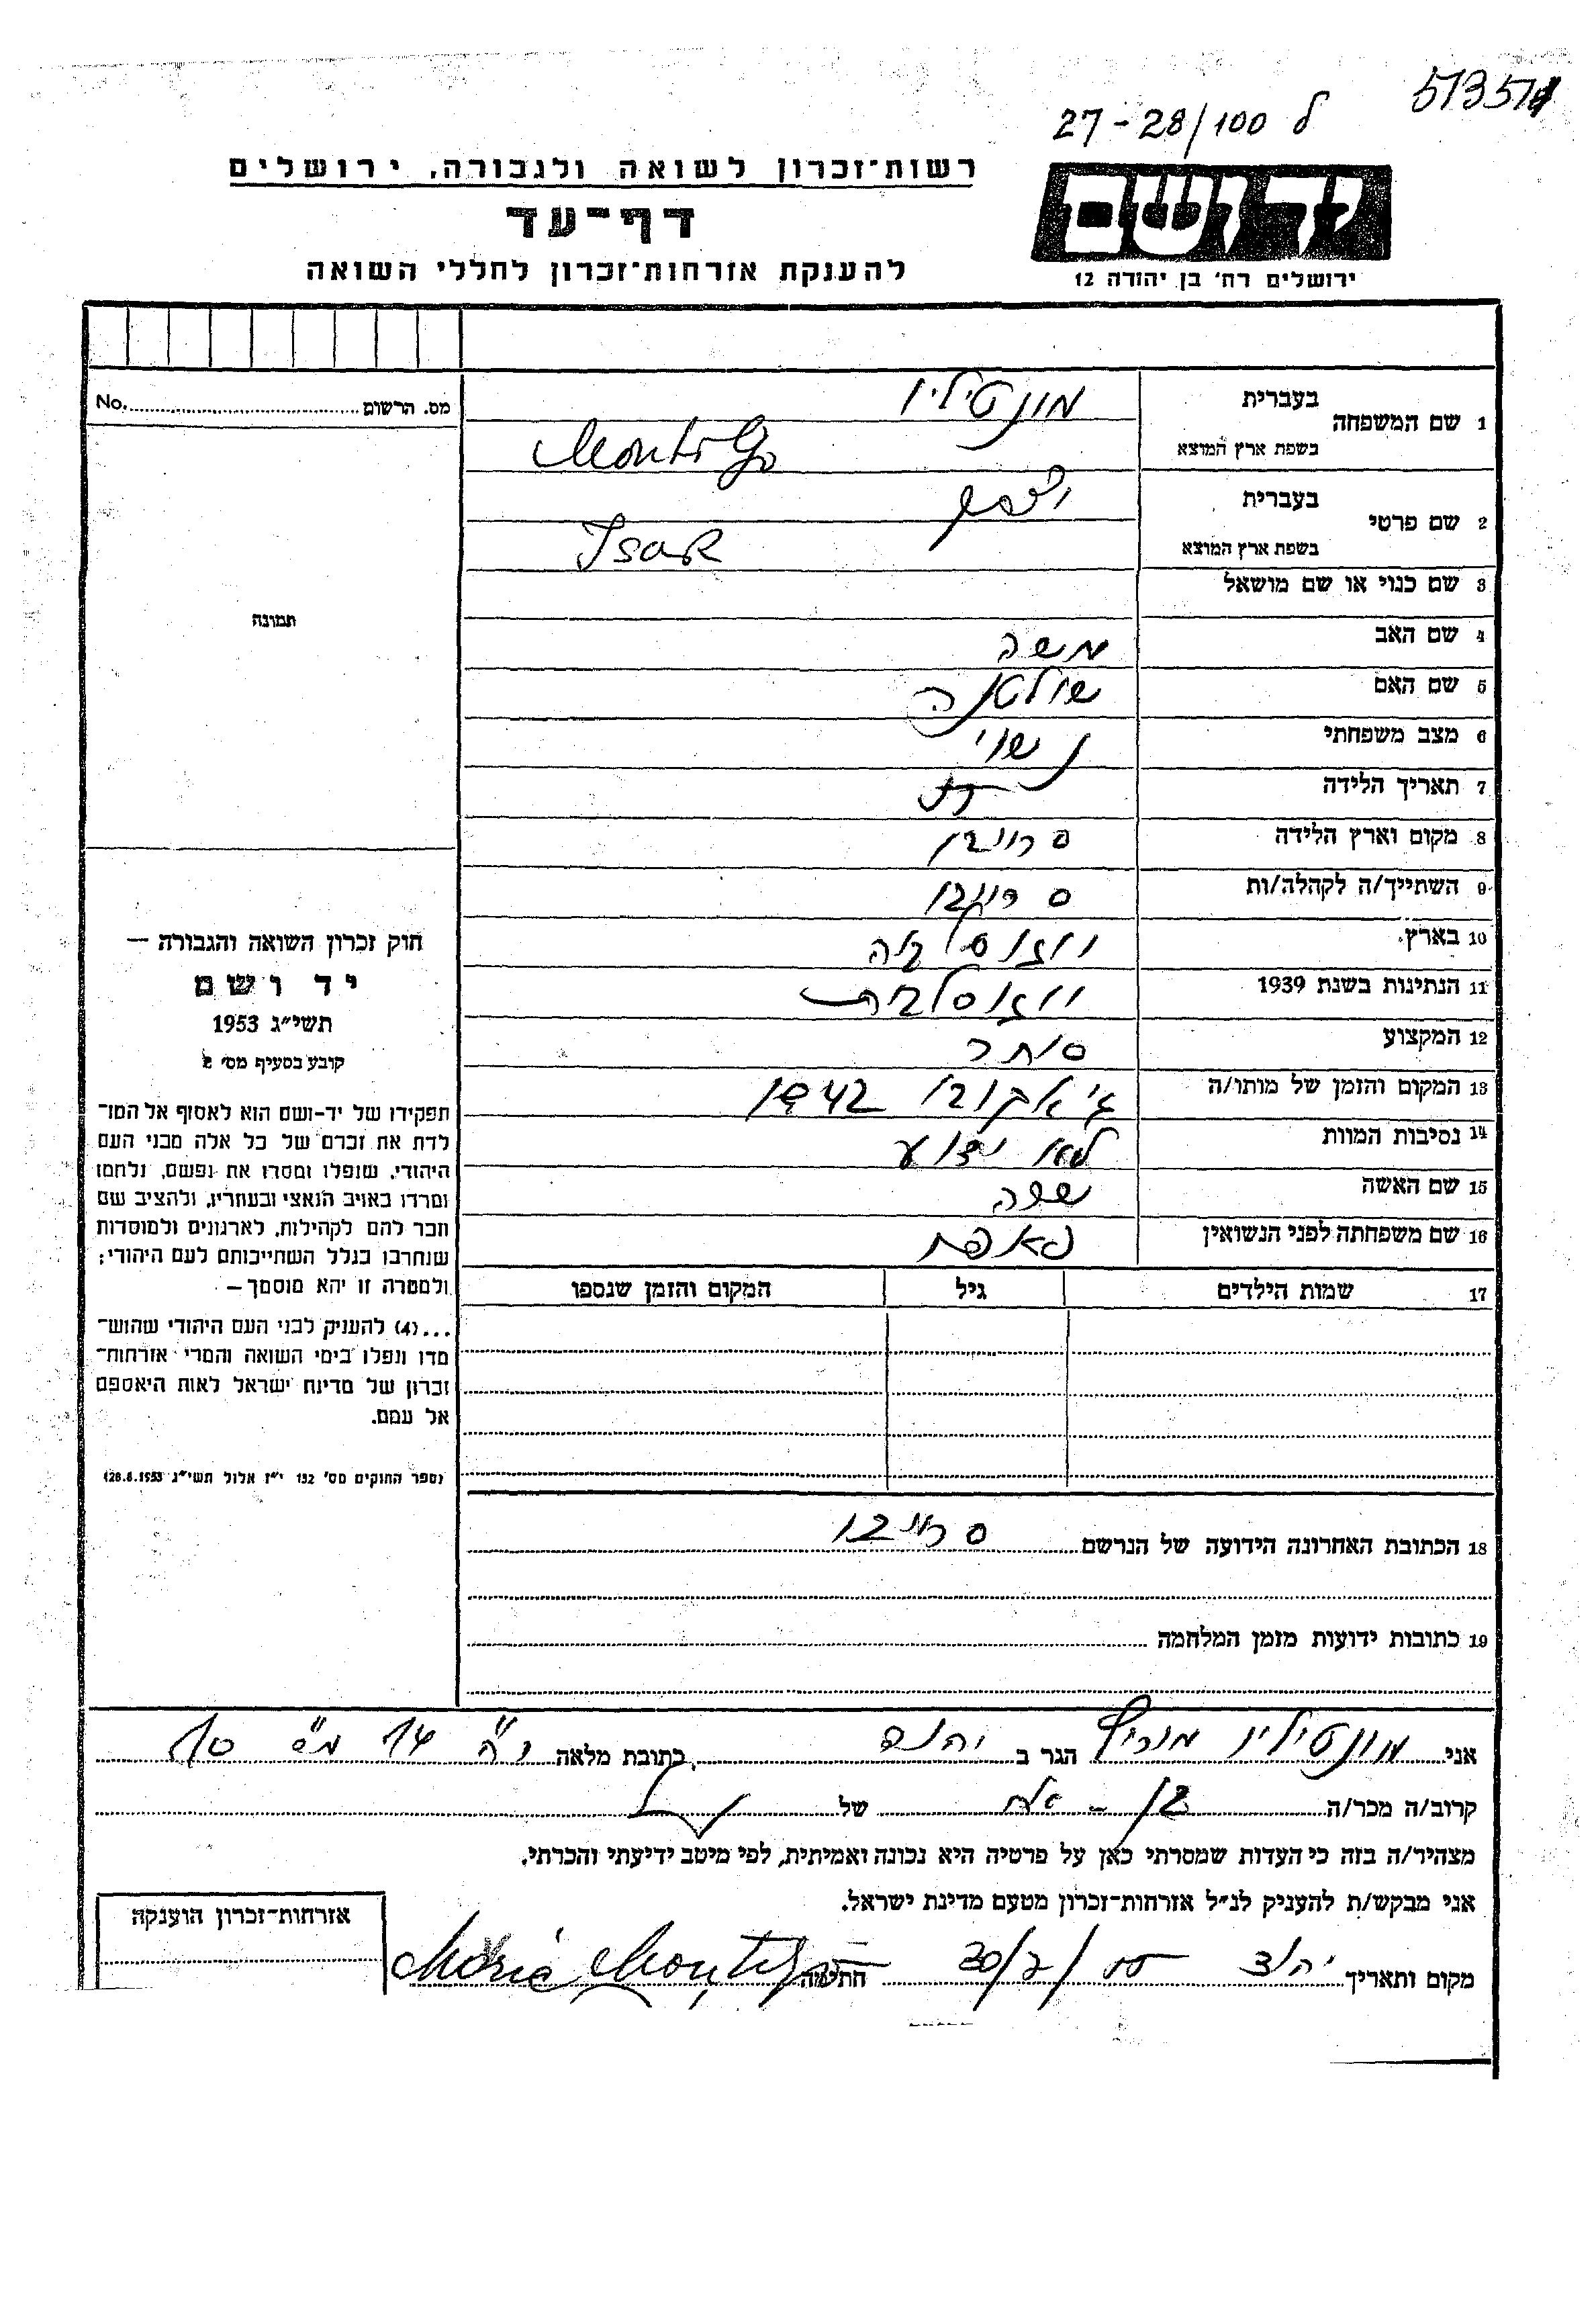 51351
27-28/100 ל
יד ושם
ירושלים רח' בן יהודה 12
רשות־זכרון לשואה ולגבורה, ירושלים
דף־עד
להענקת אזרחות־זכרון לחללי השואה
1 שם המשפחה בעברית מונטיליו
בשפת ארץ המוצא Montiljo
2 שם פרטי בעברית יצחק
בשפת ארץ המוצא Isak
3 שם כנוי או שם מושאל
4 שם האב משה
5 שם האם שולטנה
6 מצב משפחתי נשוי
7 תאריך הלידה
8 מקום וארץ הלידה סריבו
9 השתייך/ה לקהלה/ות סריבו
10 בארץ יוגוסלביה
11 הנתינות בשנת 1939 יוגוסלבית
12 המקצוע סוחר
13 המקום והזמן של מותו/ה ג'אקובו 1942
14 נסיבות המוות לא ידוע
15 שם האשה שרה
16 שם משפחתה לפני הנשואין
17 שמות הילדים גיל המקום והזמן שנספו
18 הכתובת האחרונה הידועה של הנרשם סריבו
19 כתובות ידועות מזמן המלחמה
מס. הרשום No.
תמונה
חוק זכרון השואה והגבורה —
יד ושם
תשי״ג 1953
קובע בסעיף מס' 2
תפקידו של יד-ושם הוא לאסוף אל המו־
לדת את זכרם של כל אלה מבני העם
היהודי, שנפלו ומסרו את נפשם, נלחמו
ומרדו באויב הנאצי ובעוזריו, ולהציב שם
וזכר להם לקהילות, לארגונים ולמוסדות
שנחרבו בגלל השתייכותם לעם היהודי;
ולמטרה זו יהא מוסמך —
...(4) להעניק לבני העם היהודי שהוש־
מדו ונפלו בימי השואה והמרי אזרחות־
זכרון של מדינת ישראל לאות היאספם
אל עמם.
(ספר החוקים מס' 132 י״ז אלול תשי״ג 28.8.1953)
אני מונטיליו מוריץ הגר ב יהוד כתובת מלאה
קרוב/ה מכר/ה בן - אח של
מצהיר/ה בזה כי העדות שמסרתי כאן על פרטיה היא נכונה ואמיתית, לפי מיטב ידיעתי והכרתי.
אני מבקש/ת להעניק לנ״ל אזרחות־זכרון מטעם מדינת ישראל.
מקום ותאריך יהוד 20/2/55 חתימה
אזרחות־זכרון הוענקה